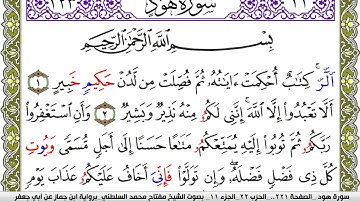 سورة هود
بِسْمِ اللَّهِ الرَّحْمَٰنِ الرَّحِيمِ
الٓرۚ كِتَٰبٌ أُحْكِمَتْ ءَايَٰتُهُۥ ثُمَّ فُصِّلَتْ مِن لَّدُنْ حَكِيمٍ خَبِيرٍ ١
أَلَّا تَعْبُدُوٓا۟ إِلَّا اللَّهَۚ إِنَّنِى لَكُمُۥ مِنْهُ نَذِيرٌ وَبَشِيرٌ ٢ وَأَنِ اسْتَغْفِرُوا۟
رَبَّكُمُۥ ثُمَّ تُوبُوٓا۟ إِلَيْهِ يُمَتِّعْكُمُۥ مَتَٰعًا حَسَنًا إِلَىٰٓ أَجَلٍ مُّسَمًّى وَيُوتِ
كُلَّ ذِى فَضْلٍ فَضْلَهُۥۖ وَإِن تَوَلَّوْا۟ فَإِنِّىَ أَخَافُ عَلَيْكُمُۥ عَذَابَ يَوْمٍ
سورة هود .. الصفحة ٢٢١.. الحزب ٢٢ .. الجزء ١١ .. بصوت الشيخ مفتاح محمد السلطني .. برواية ابن جماز عن أبي جعفر